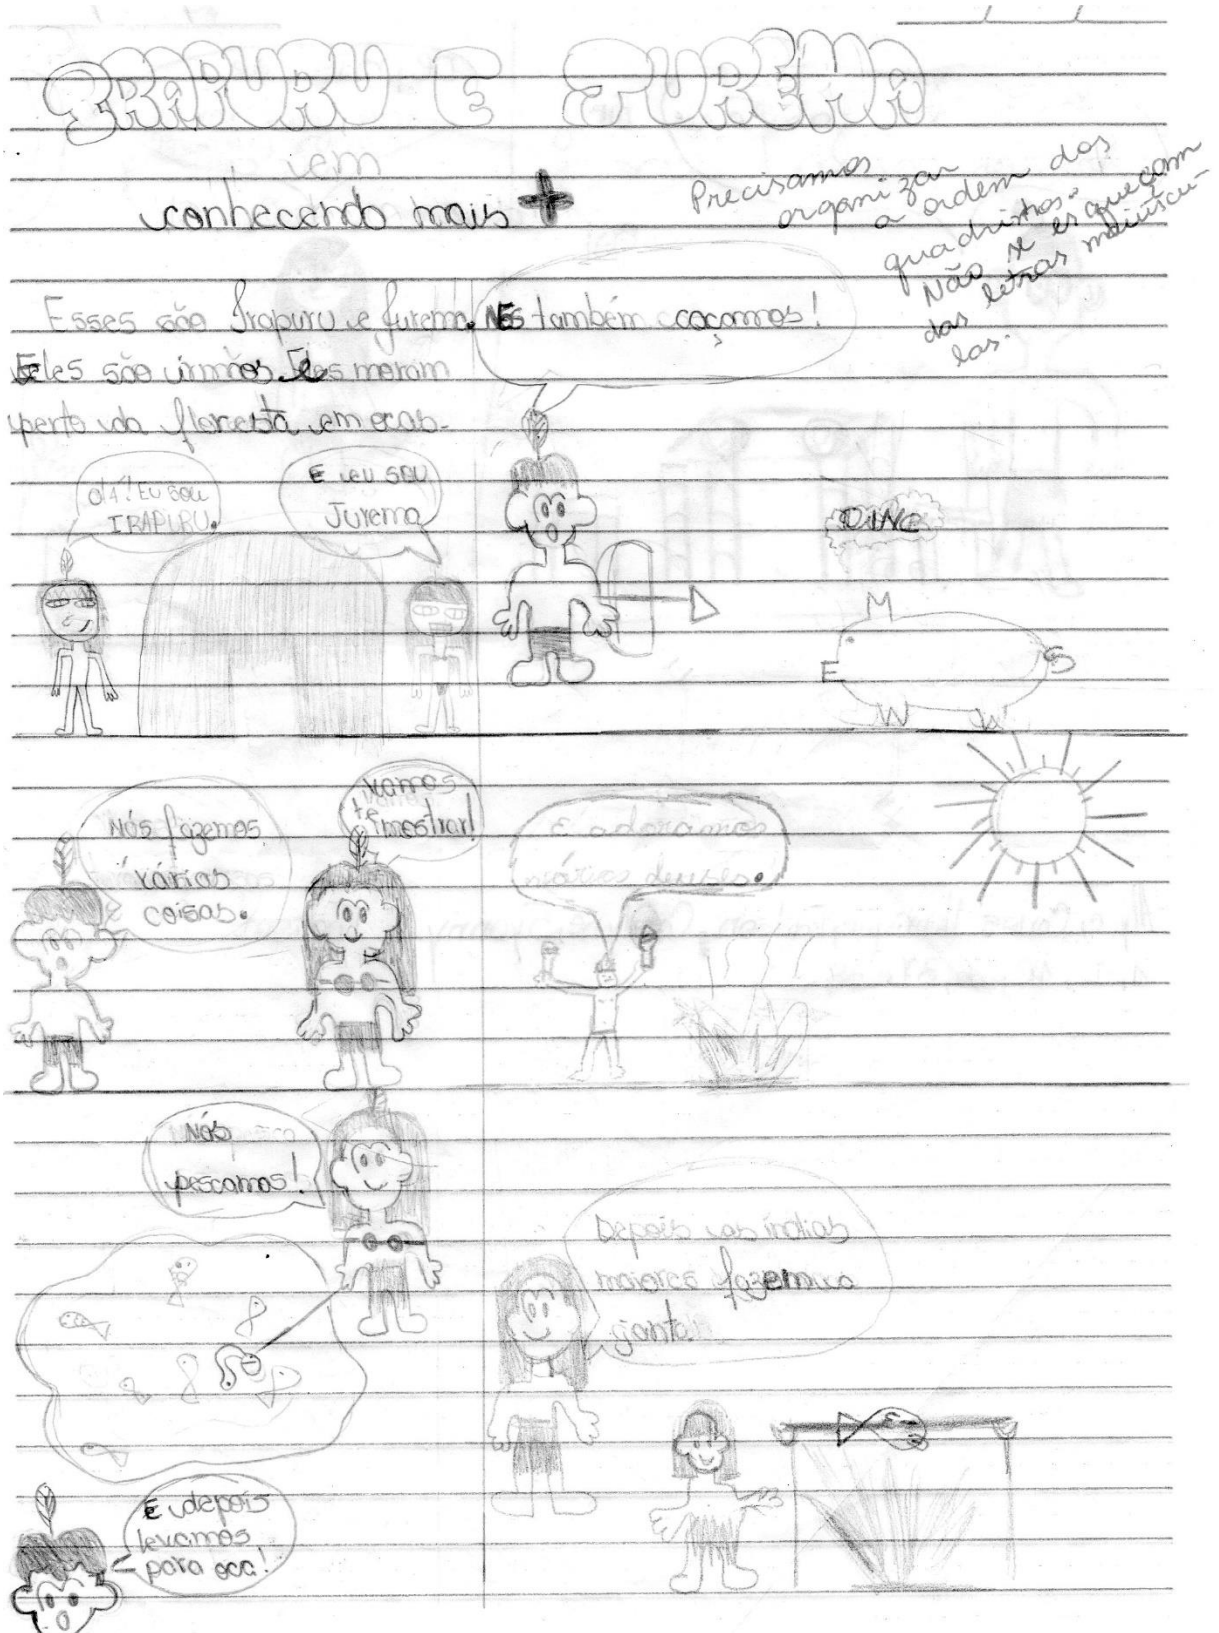 IRAPURU E JUREMA
em
conhecendo mais +
Precisamos
organizar
a ordem dos
quadrinhos.
Não se esqueçam
das letras maiúscu-
las.
Esses são Irapuru e Jurema.
Eles são irmãos. Eles moram
perto da floresta em ocas.
Olá! EU SOU
IRAPURU.
E eu sou
Jurema
Nós também caçamos!
OINC
Nós fazemos
várias
coisas.
Vamos
te mostrar!
E adoramos
vários deuses.
Nós
pescamos!
E depois
levamos
para oca!
Depois as índias
maiores fazem a
janta